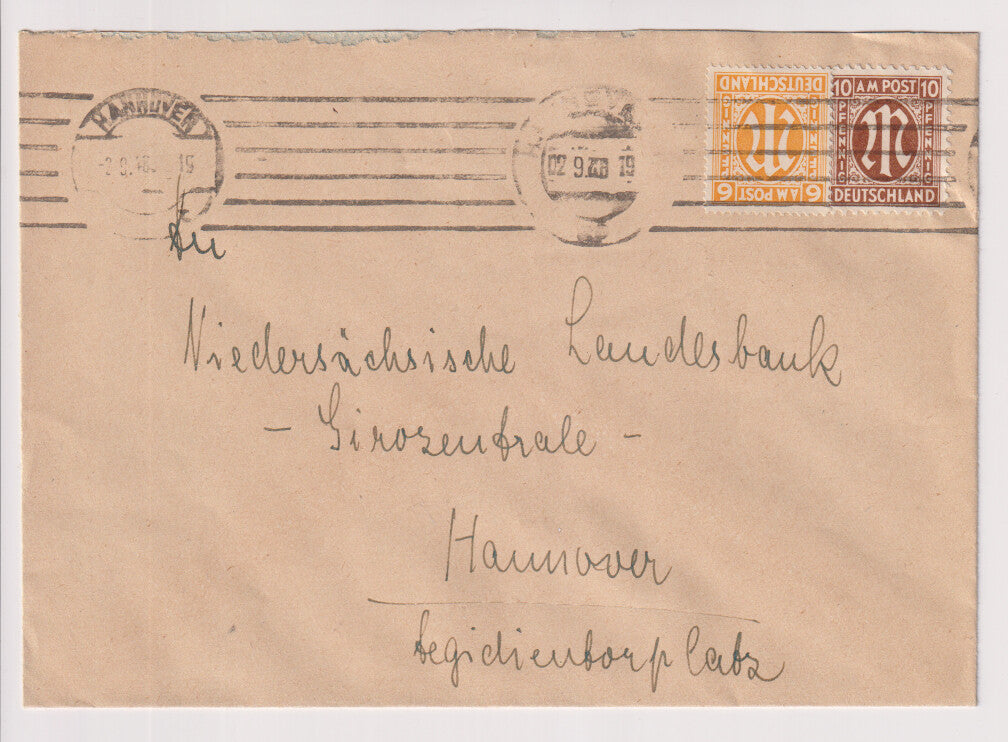 HANNOVER
-2.9.46. 19
02 9.46 19
DEUTSCHLAND
6 AM POST 6
10 AM POST 10
PFENNIG PFENNIG
DEUTSCHLAND
An
Niedersächsische Landesbank
- Girozentrale -
Hannover
Aegidientorplatz